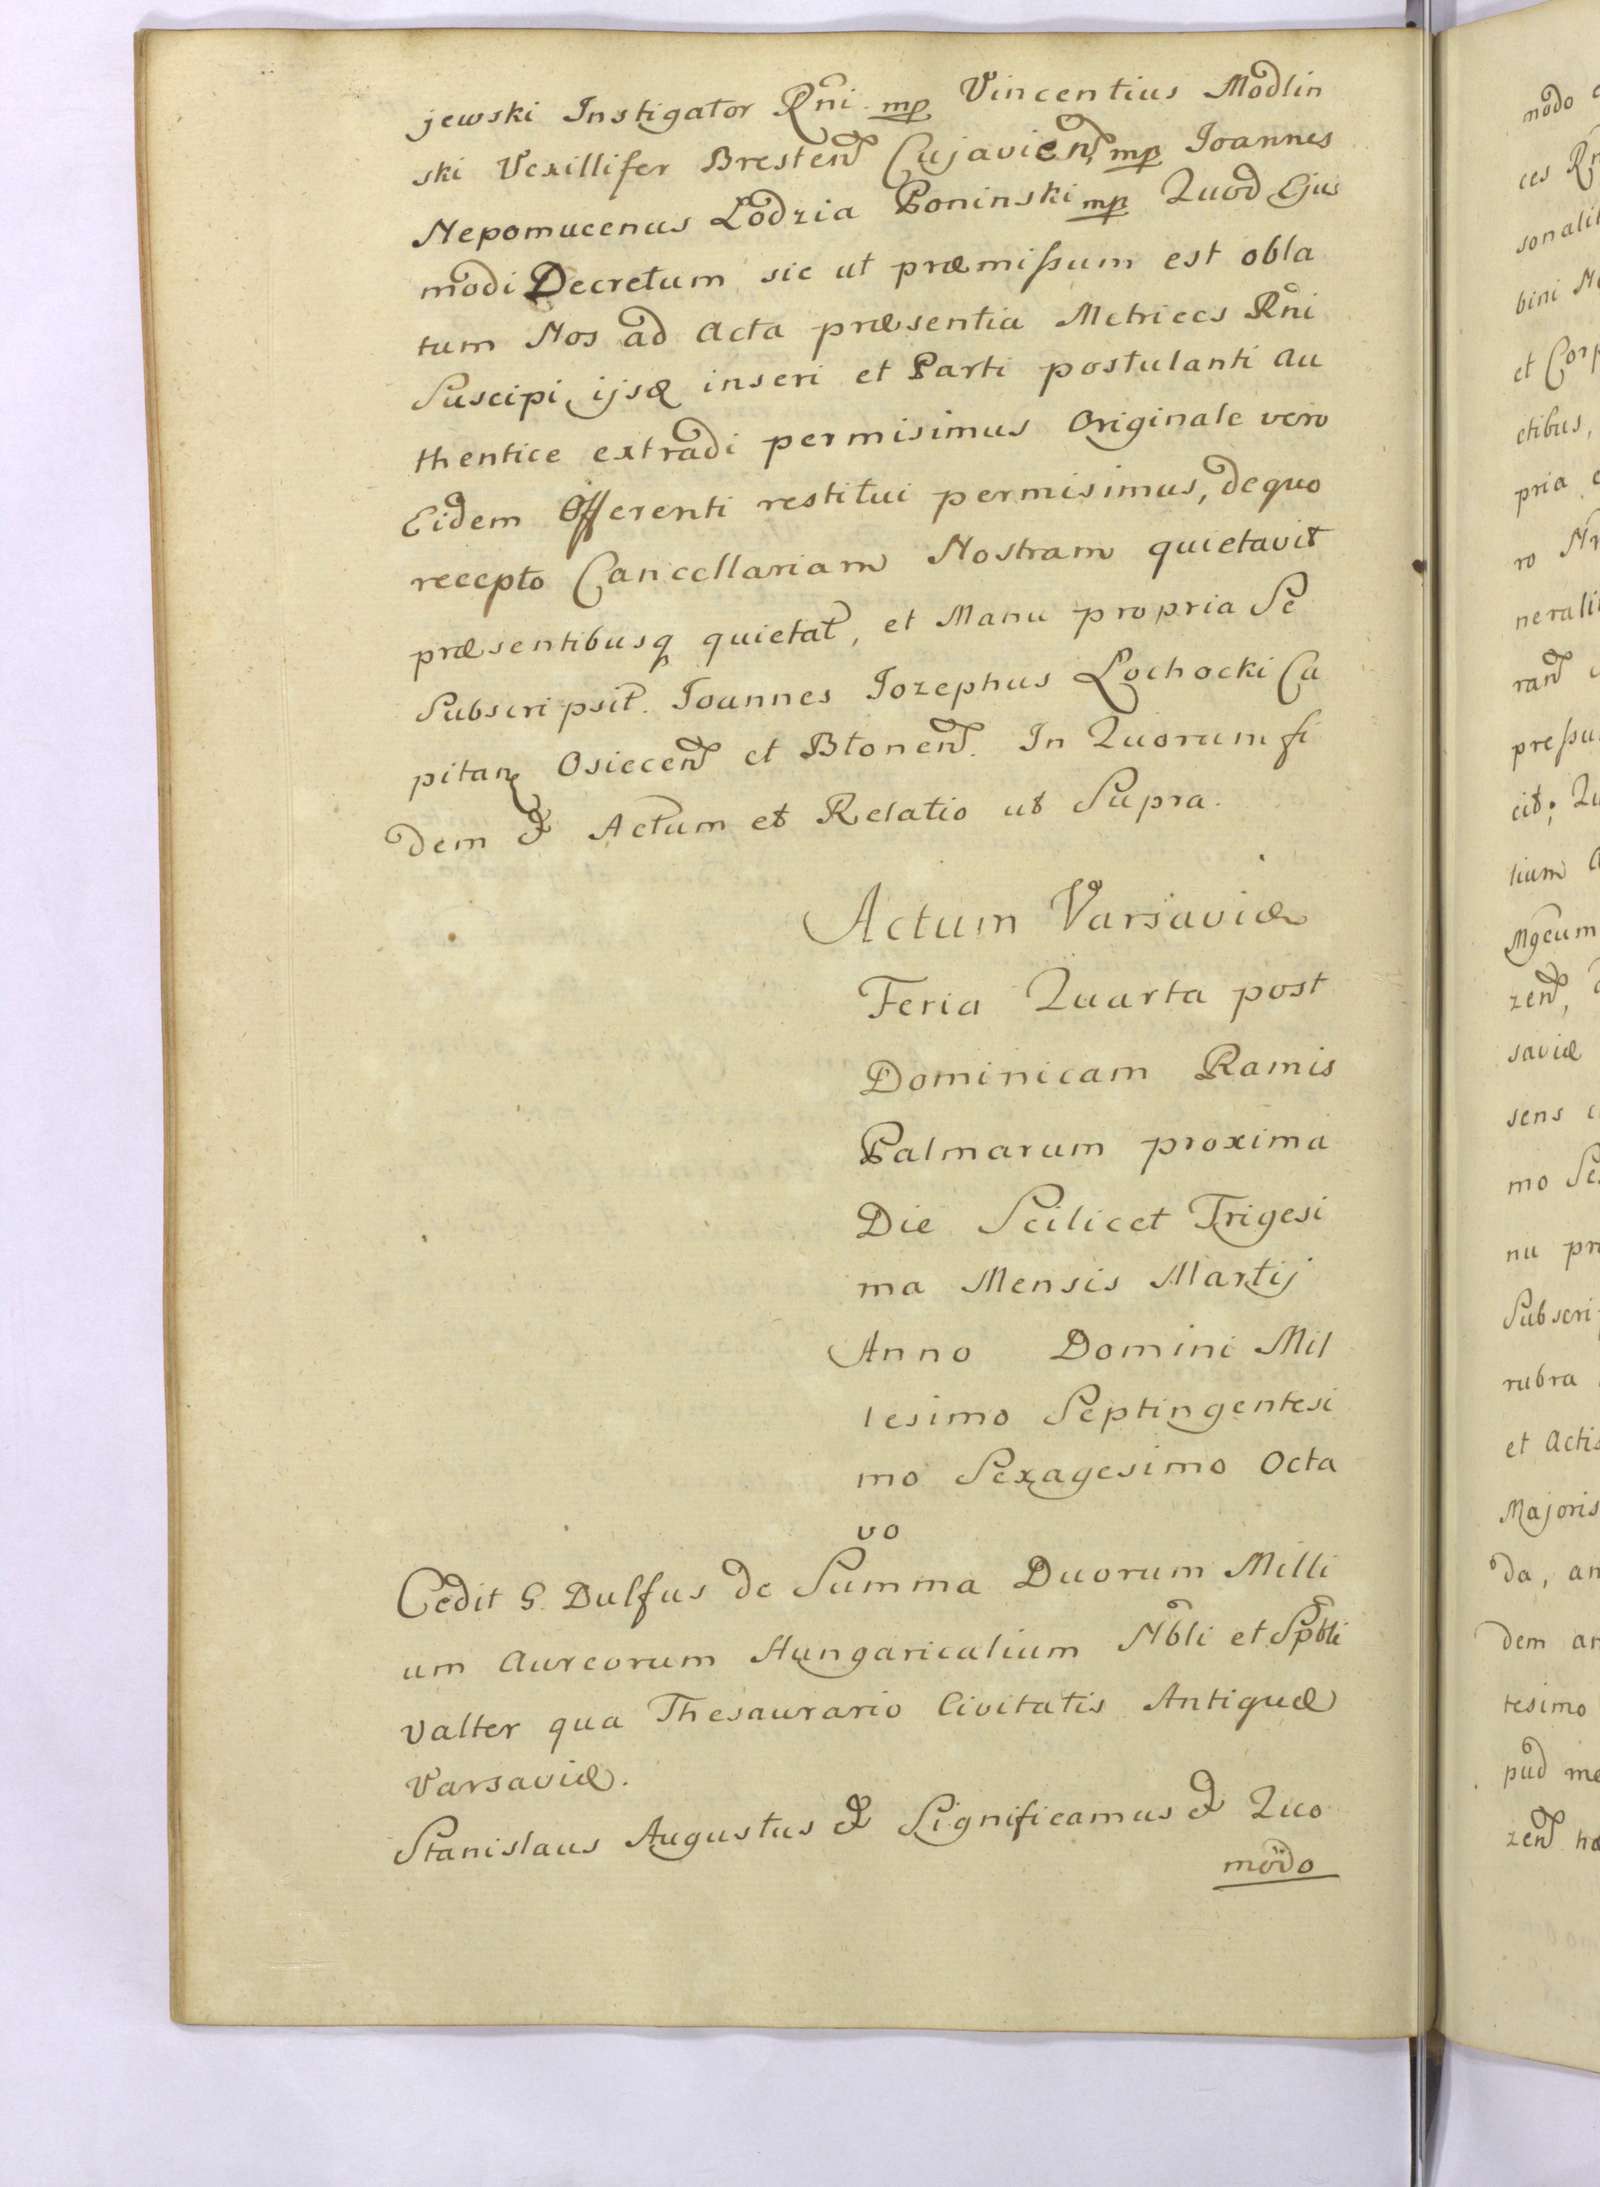 jewski Instigator Rni mp Vincentius Modlin
ski Vexillifer Bresten Cujavien, mp Ioannes
Nepomucenus Lodzia Poninski mp Quod Ejus
modi Decretum sic ut præmissum est obla
tum Nos ad Acta præsentia Metrices Rni
Suscipi, ijsq inseri et Parti postulanti au
thentice extradi permisimus Originale vero
Eidem Offerenti restitui permisimus, de quo
recepto Cancellariam Nostram quietavit
præsentibusq quietat, et Manu propria Se
Subscripsit. Ioannes Iozephus Lochocki Ca
pitan Osiecen et Blonen. In Quorum fi
dem & Actum et Relatio ut Supra.
Actum Varsaviæ
Feria Quarta post
Dominicam Ramis
Palmarum proxima
Die Scilicet Trigesi
ma Mensis Martij
Anno Domini Mil
lesimo Septingentesi
mo Sexagesimo Octa
vo
Cedit G. Dulfus de Summa Duorum Milli
um Aureorum Hungaricalium Nbli et Spbli
Valter qua Thesaurario Civitatis Antiquæ
Varsaviæ.
Stanislaus Augustus & Significamus & Quo
modo
modo
ces
sonalit
bini
et Corp
ctibus,
pria
ro
neralit
ran
pressu
cit; Qu
lium
Mgcum
zen,
saviæ
sens
mo Se
nu pro
Subscri
rubra
et Actis
Majoris
da, an
dem an
tesimo
pud me
zen